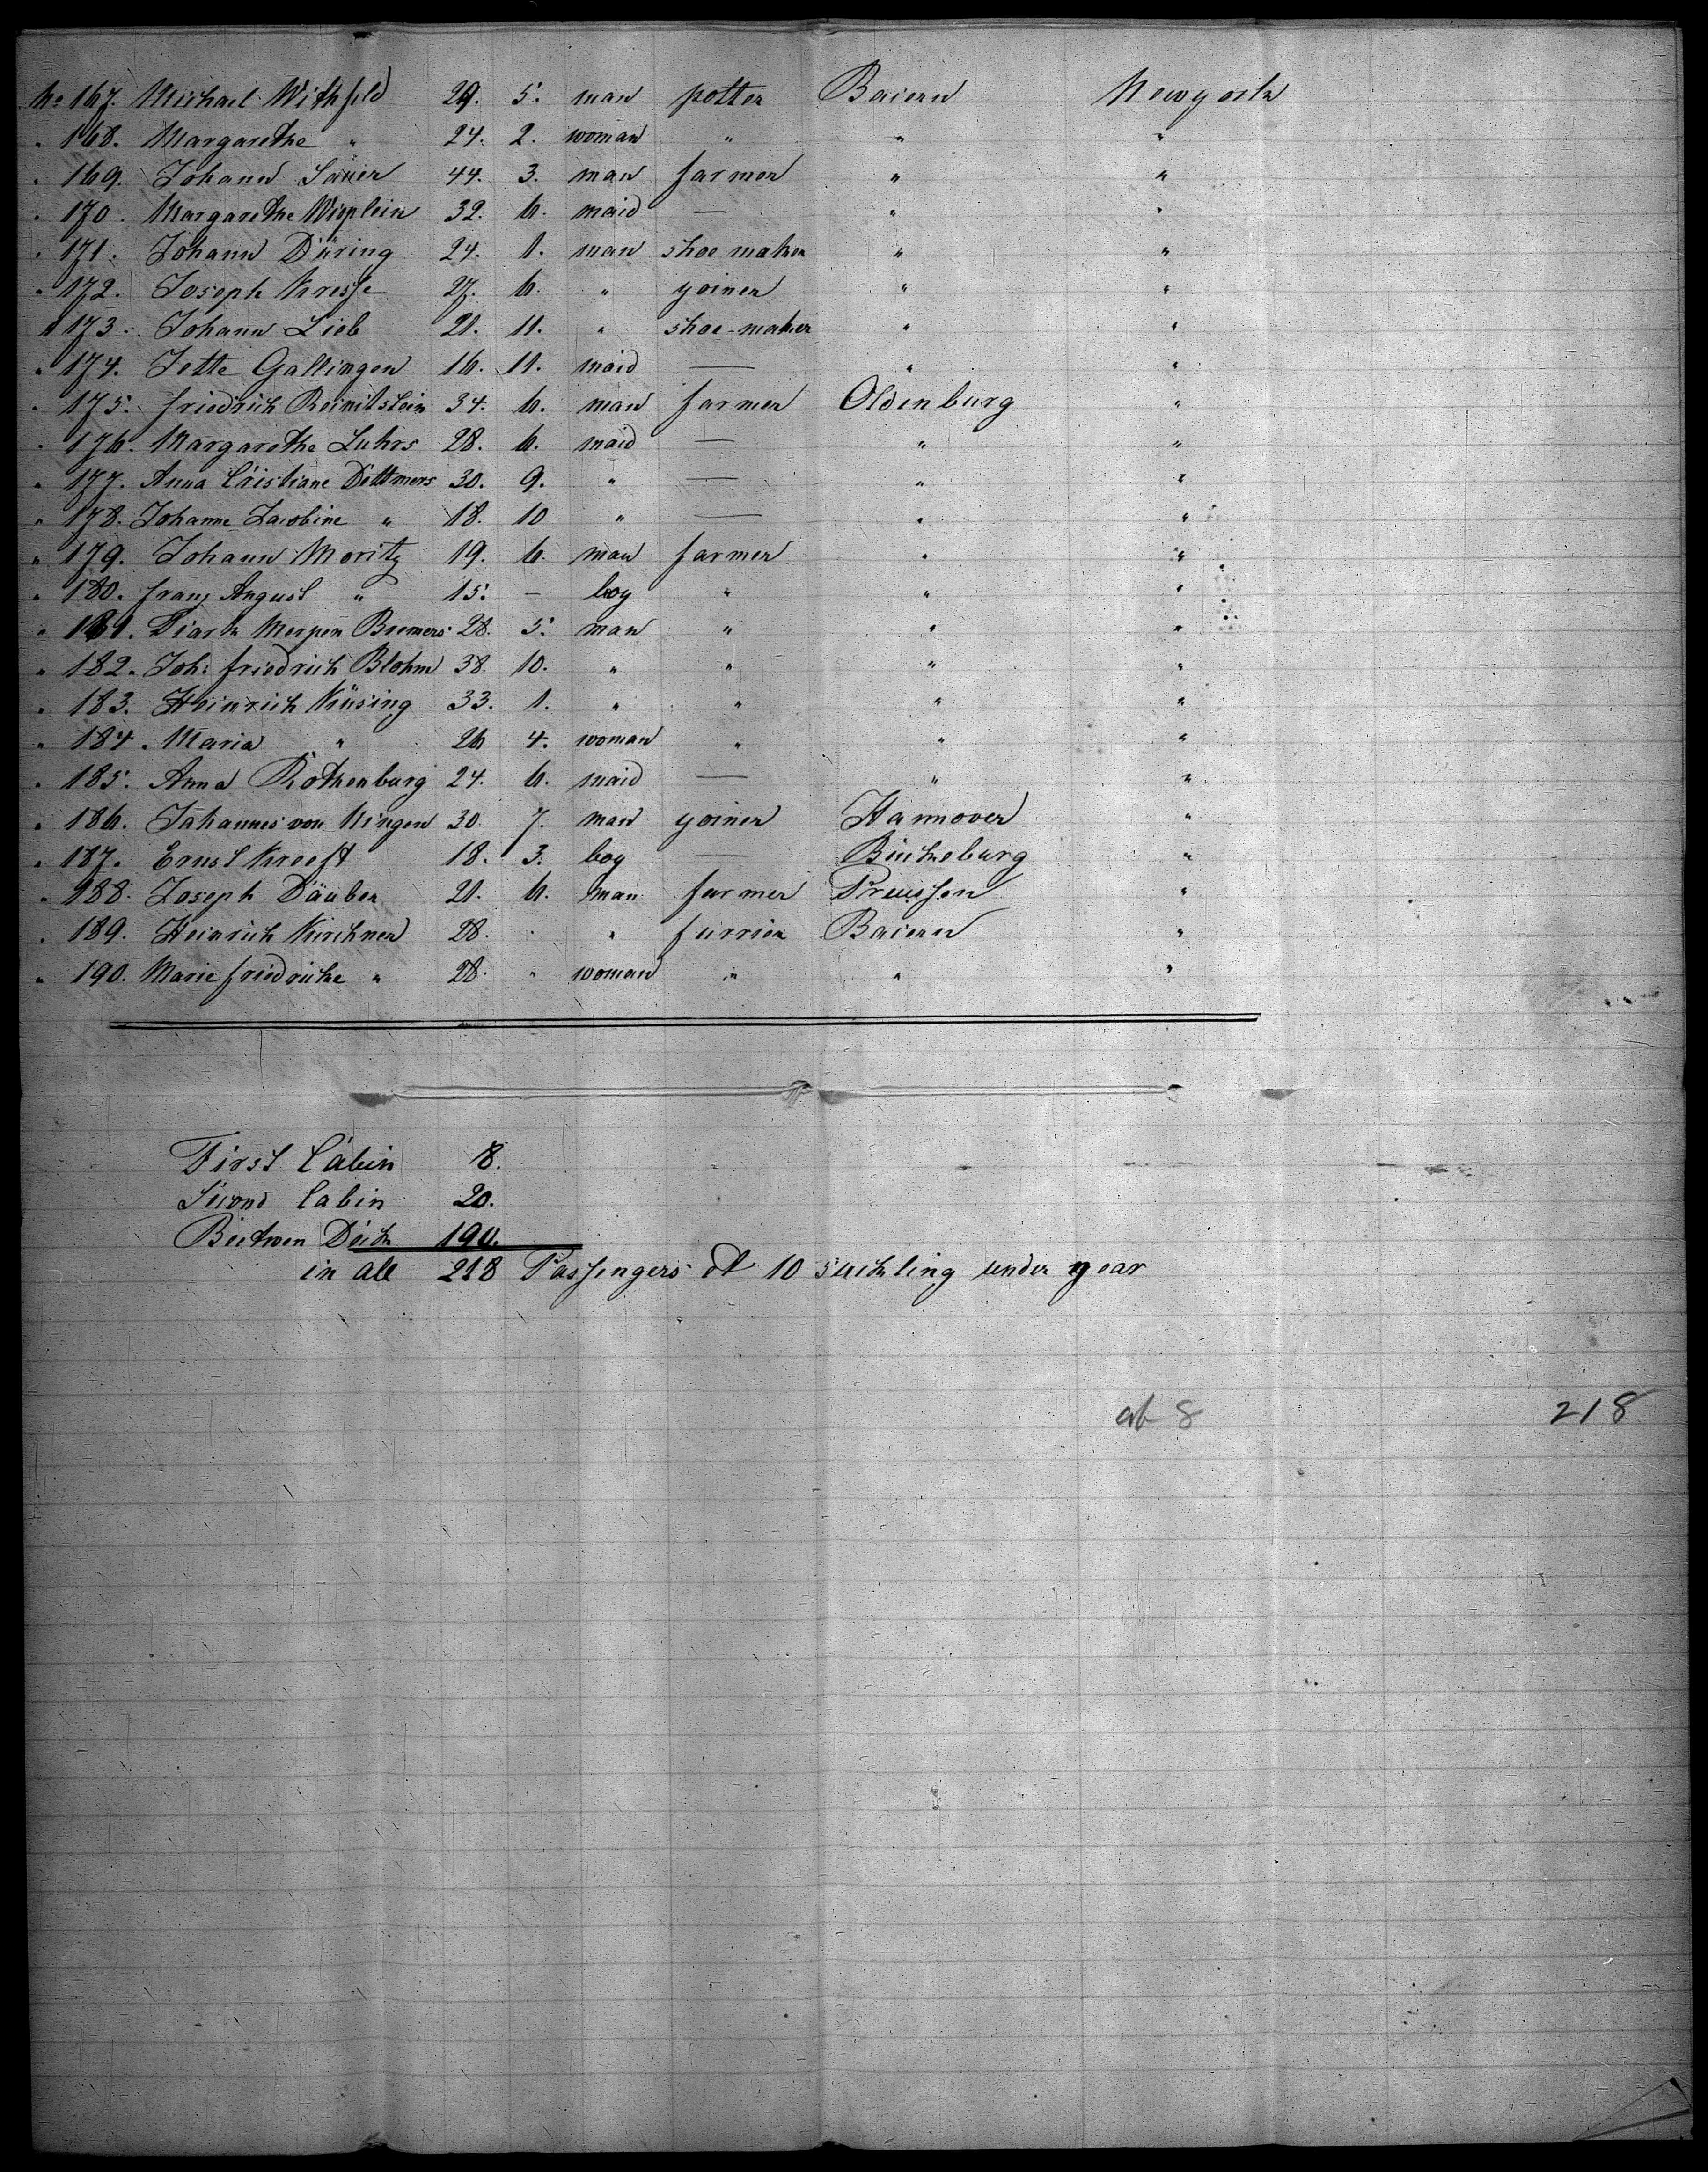 No 167. Michael Withfeld 29. 5. man potter Baiern Newyork
" 168. Margarethe " 24. 2. woman " " "
" 169. Johann Sauer 44. 3. man farmer " "
" 170. Margarethe Wisplein 32. 6. maid — " "
" 171. Johann Düring 24. 1. man shoe maker " "
" 172. Joseph Kresse 27. 6. " yoiner " "
" 173. Johann Lieb 21. 11. " shoe-maker " "
" 174. Jette Gallingen 16. 11. maid — " "
" 175. Friedrich Reinitstein 34. 6. man farmer Oldenburg "
" 176. Margarethe Luhrs 28. 6. maid — " "
" 177. Anna Cristiane Dettmers 30. 9. " — " "
" 178. Johanne Jacobine " 18. 10 " — " "
" 179. Johann Moritz 19. 6. man farmer " "
" 180. Franz August " 15. — boy " " "
" 181. Diark Merpen Bremers 28. 5. man " " "
" 182. Joh: Friedrich Blohm 38. 10. " " " "
" 183. Heinrich Küsing 33. 1. " " " "
" 184. Maria " 26 4. woman " " "
" 185. Anna Rothenburg 24. 6. maid — " "
" 186. Johannes von Ningen 30. 7. man yoiner Hannover "
" 187. Ernst Kreeft 18. 3. boy — Bückeburg "
" 188. Joseph Däuber 21. 6. man farmer Preussen "
" 189. Heinrich Kirchner 28. " " furrier Baiern "
" 190. Marie Friedricke " 28. " woman " " "
First Cabin 8.
Second Cabin 20.
Beetwen Deck 190.
in all 218 Passengers et 10 suckling under year
ab 8 218